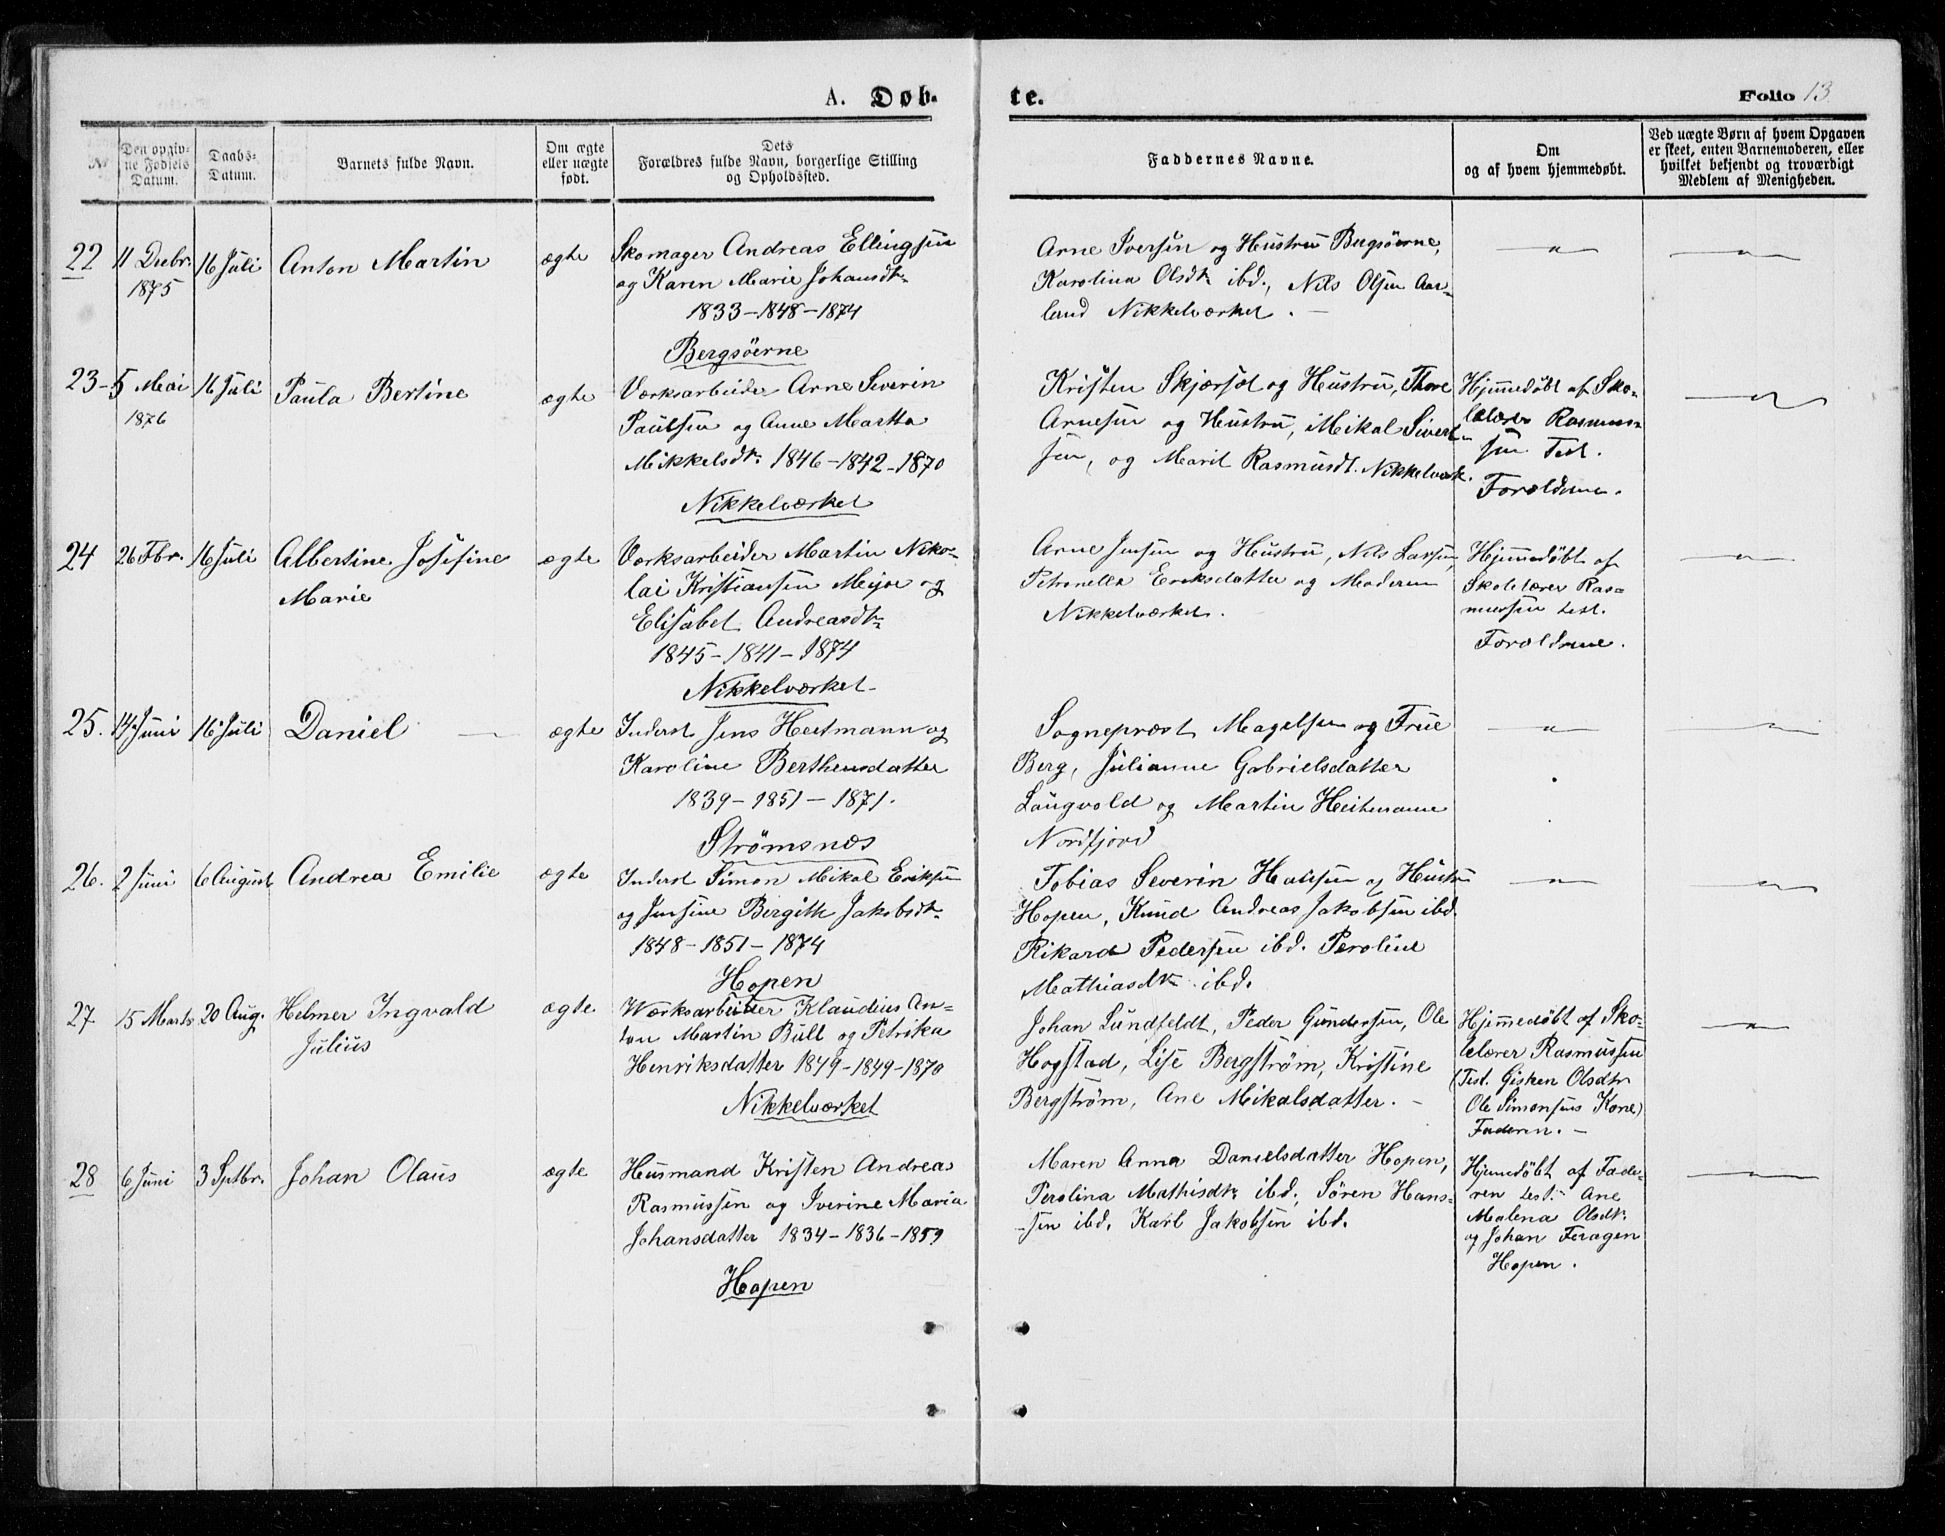 A. Døb-
te.
Folio 13
№
Den opgiv-
ne Fødsels
Datum.
Daabs-
Datum.
Barnets fulde Navn.
Om ægte
eller uægte
født.
Dets
Forældres fulde Navn, borgerlige Stilling
og Opholdssted.
Faddernes Navne.
Om
og af hvem hjemmedøbt.
Ved uægte Børn af hvem Opgaven
er skeet, enten Barnemoderen, eller
hvilket bekjendt og troværdigt
Medlem af Menigheden.
22
11 Decbr.
1875
16 Juli
Anton Martin
ægte
Skomager Andreas Ellingsen
og Karen Marie Johansdtr
1833 - 1848 - 1874
Bergsöerne
Arne Iversen og Hustru Bergsöerne,
Karolina Olsdtr ibd., Nils Olsen Aar-
land Nikkelværket. -
23 -
5 Mai
1876
16 Juli
Paula Bertine
ægte
Værksarbeider Arne Severin
Paulsen og Anne Martha
Mikkelsdtr 1846 - 1842 - 1870
Nikkelværket
Kristen Skjærsol og Hustru, Thore
Arnesen og Hustru, Mikal Sivert-
sen, og Marit Rasmusdt. Nikkelværk.
Hjemmedøbt af Sko-
lelærer Rasmus-
sen Test.
Forældrene.
24
26 Fbr.
16 Juli
Albertine Josefine
Marie
ægte
Værksarbeider Martin Niko-
lai Kristiansen Meyer og
Elisabet Andreasdtr
1845 - 1841 - 1874
Nikkelværket
Arne Jensen og Hustru, Nils Larsen,
Petronella Eriksdatter og Moderen
Nikkelværket.
Hjemmedøbt af
Skolelærer Ras-
mussen test.
Forældrene.
25.
14 Juni
16 Juli
Daniel
ægte
Inderst Jens Heitmann og
Karoline Berthensdatter
1839 - 1851 - 1871.
Strömsnæs
Sogneprest Magelsen og Frue
Berg, Julianne Gabrielsdatter
Langvold og Martin Heitmann
Nordfjord
26.
2 Juni
6 August
Andrea Emilie
ægte
Inderst Simon Mikal Eriksen
og Jensine Bergith Jakobsdtr
1848 - 1851 - 1874
Hopen
Tobias Severin Hansen og Hustru
Hopen, Knud Andreas Jakobsen ibd.
Rikard Pedersen ibd. Peroline
Mathiasdtr ibd.
27
15 Marts
20 Aug.
Helmer Ingvald
Julius
ægte
Værksarbeider Klaudius An-
ton Martin Bull og Petrika
Henriksdatter 1849 - 1849 - 1870
Nikkelværket
Johan Lundfeldt, Peder Gundersen, Ole
Hogstad, Lise Bergström, Kristine
Bergström, Ane Mikalsdatter. -
Hjemmedøbt af Sko-
lelærer Rasmussen
(Test. Gisken Olsdtr
Ole Simonsens Kone)
Faderen. -
28
6 Juni
3 Sptbr.
Johan Olaus
ægte
Husmand Kristen Andreas
Rasmussen og Iverine Maria
Johansdatter 1834 - 1836 - 1859
Hopen
Maren Anna Danielsdatter Hopen,
Perolina Mathisdtr ibd., Sören Hans-
sen ibd. Karl Jakobsen ibd.
Hjemmedøbt af Fade-
ren test. Ane
Malena Olsdtr
og Johan Feragen
Hopen.